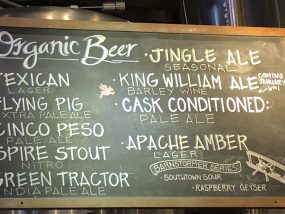 Organic Beer
TEXICAN
LAGER
FLYING PIG
EXTRA PALE ALE
CINCO PESO
PALE ALE
SPIRE STOUT
NITRO
GREEN TRACTOR
INDIA PALE ALE
· JINGLE ALE
SEASONAL
· KING WILLIAM ALE
BARLEY WINE
COMING
JANUARY
· CASK CONDITIONED:
PALE ALE
· APACHE AMBER
LAGER
BARNSTORMER SERIES
· SOUTHTOWN SOUR
· RASPBERRY GEYSER